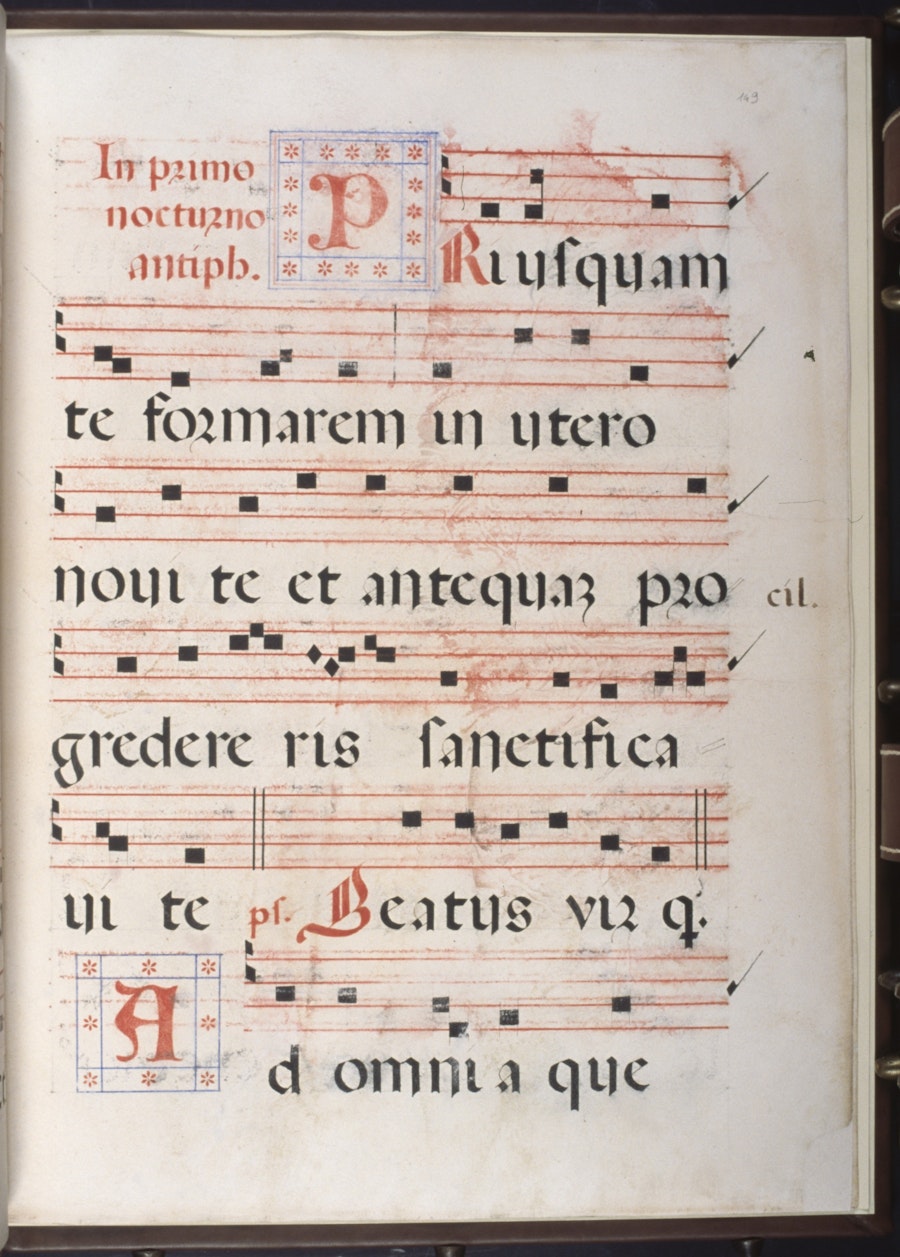 149
In primo
nocturno
antiph.
PRiusquam
te formarem in utero
noui te et antequaz pro
cil.
gredere ris sanctifica
ui te ps. Beatus vir q.
Ad omni a que